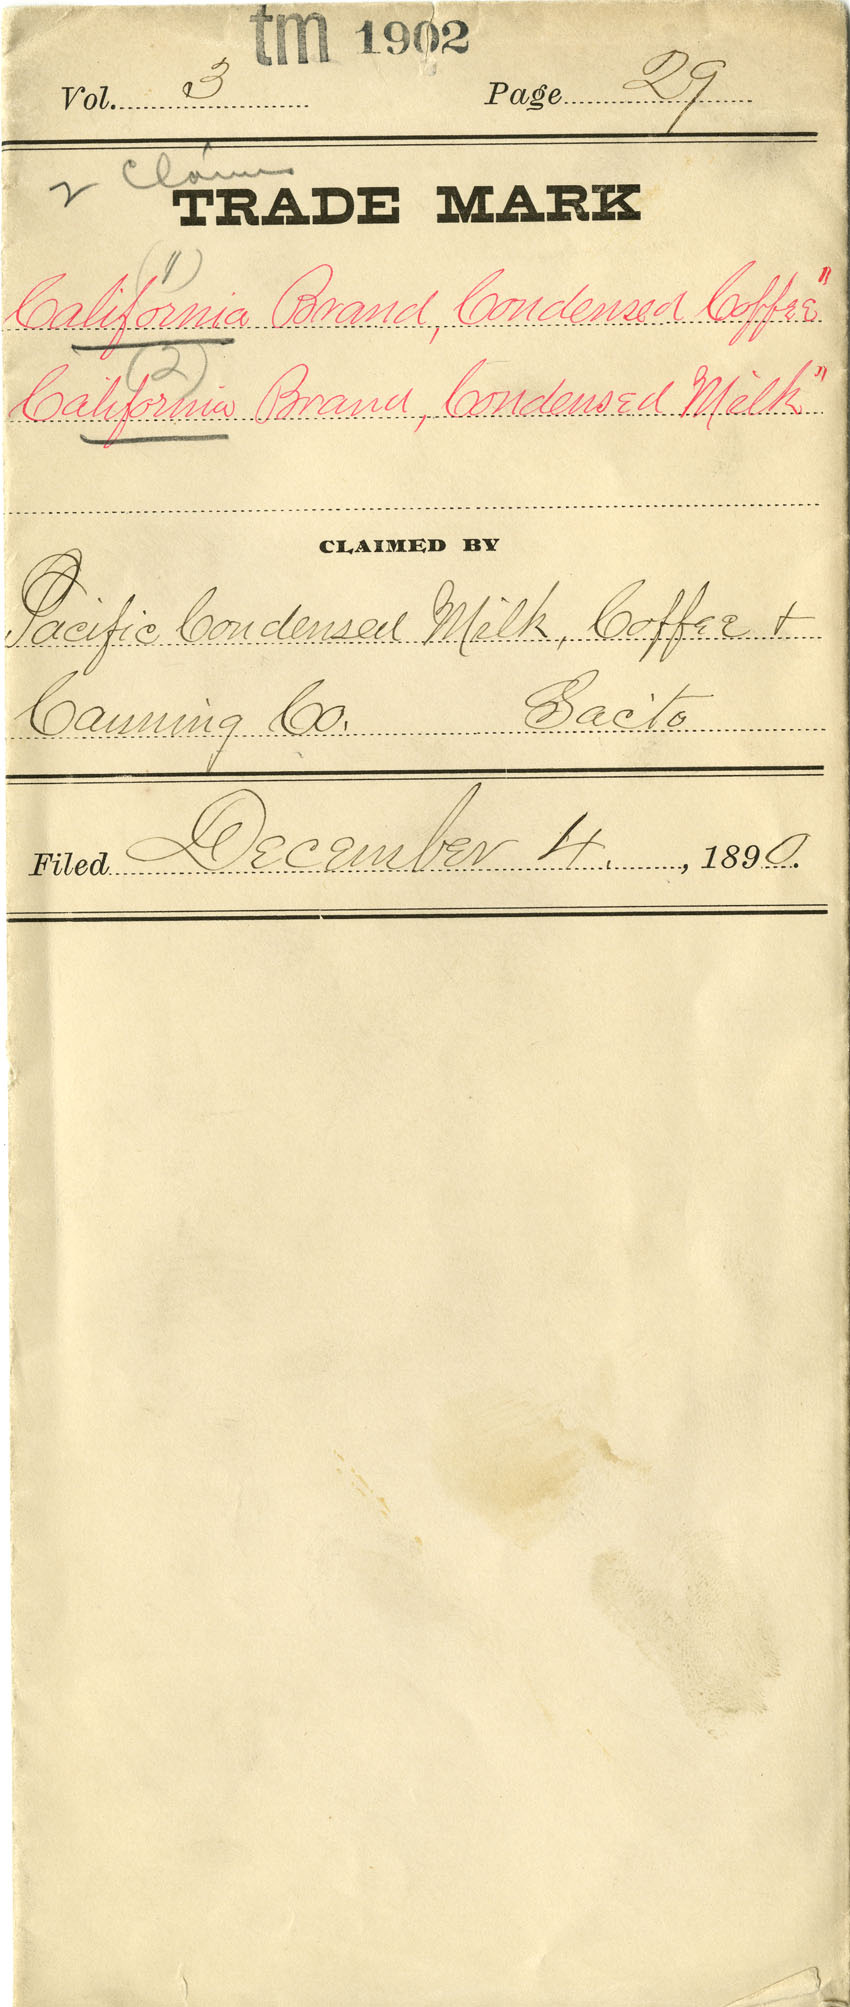 tm 1902
Vol. 3 Page 29
2 Claims
TRADE MARK
(1)
California Brand, Condensed Coffee"
(2)
California Brand, Condensed Milk"
CLAIMED BY
Pacific Condensed Milk, Coffee +
Canning Co. Sacto
Filed December 4. , 1890.